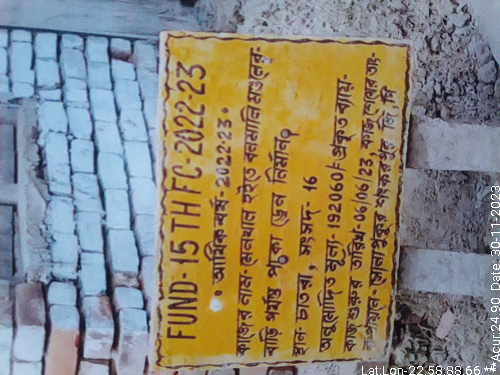 FUND-15TH FC-2022-23
• আর্থিক বর্ষ-2022-23•
কাজের নাম- মেনখাল হইতে বনমালি মন্ডলের
বাড়ি পর্যন্ত পাকা ড্রেন নির্মান।
স্থান- চাতরা, সংসদ- 16
অনুমোদিত মূল্য- 192060/- প্রকৃত ব্যয়-
কাজ শুরুর তারিখ- 06/06/23, কাজ শেষের তাং-
জি,পি
Lat:Lon-22.58:88.66 **Acur:24.90 Date: 30-11-2023